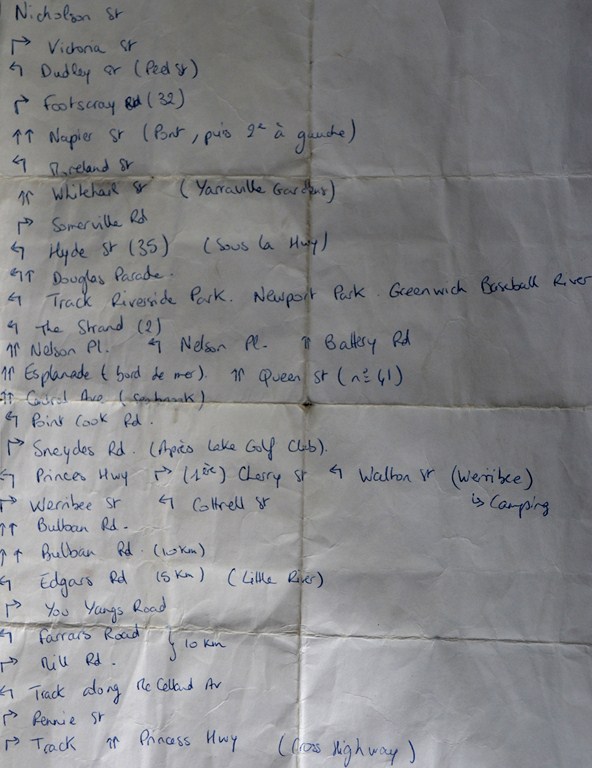 Nicholson St
↱ Victoria St
↰ Dudley St (Peel St)
↱ Footscray Rd (32)
↑↑ Napier St (Pont, puis 2e à gauche)
↰ Moreland St
↑↑ Whitehall St (Yarraville Gardens)
↱ Somerville Rd
↰ Hyde St (35) (Sous la Hwy)
↰↑ Douglas Parade.
↰ Track Riverside Park. Newport Park. Greenwich Baseball River
↰ The Strand (2)
↑↑ Nelson Pl. ↰ Nelson Pl. ↑ Battery Rd
↑↑ Esplanade (bord de mer). ↑↑ Queen St (n° 41)
↑↑ Central Ave (Seabrook)
↰ Point Cook Rd.
↱ Sneydes Rd. (Après Lake Golf Club).
↰ Princes Hwy ↱ (1ère) Cherry St ↰ Walton St (Werribee)
↱ Werribee St ↰ Cottrell St ↳ Camping
↑↑ Bulban Rd.
↑↑ Bulban Rd. (10km)
↰ Edgars Rd (5km) (Little River)
↱ You Yangs Road
↰ Farrars Road } 10 km
↱ Mill Rd.
↰ Track along Mc Celland Av
↱ Rennie St
↱ Track ↑↑ Princess Hwy (Cross Highway)